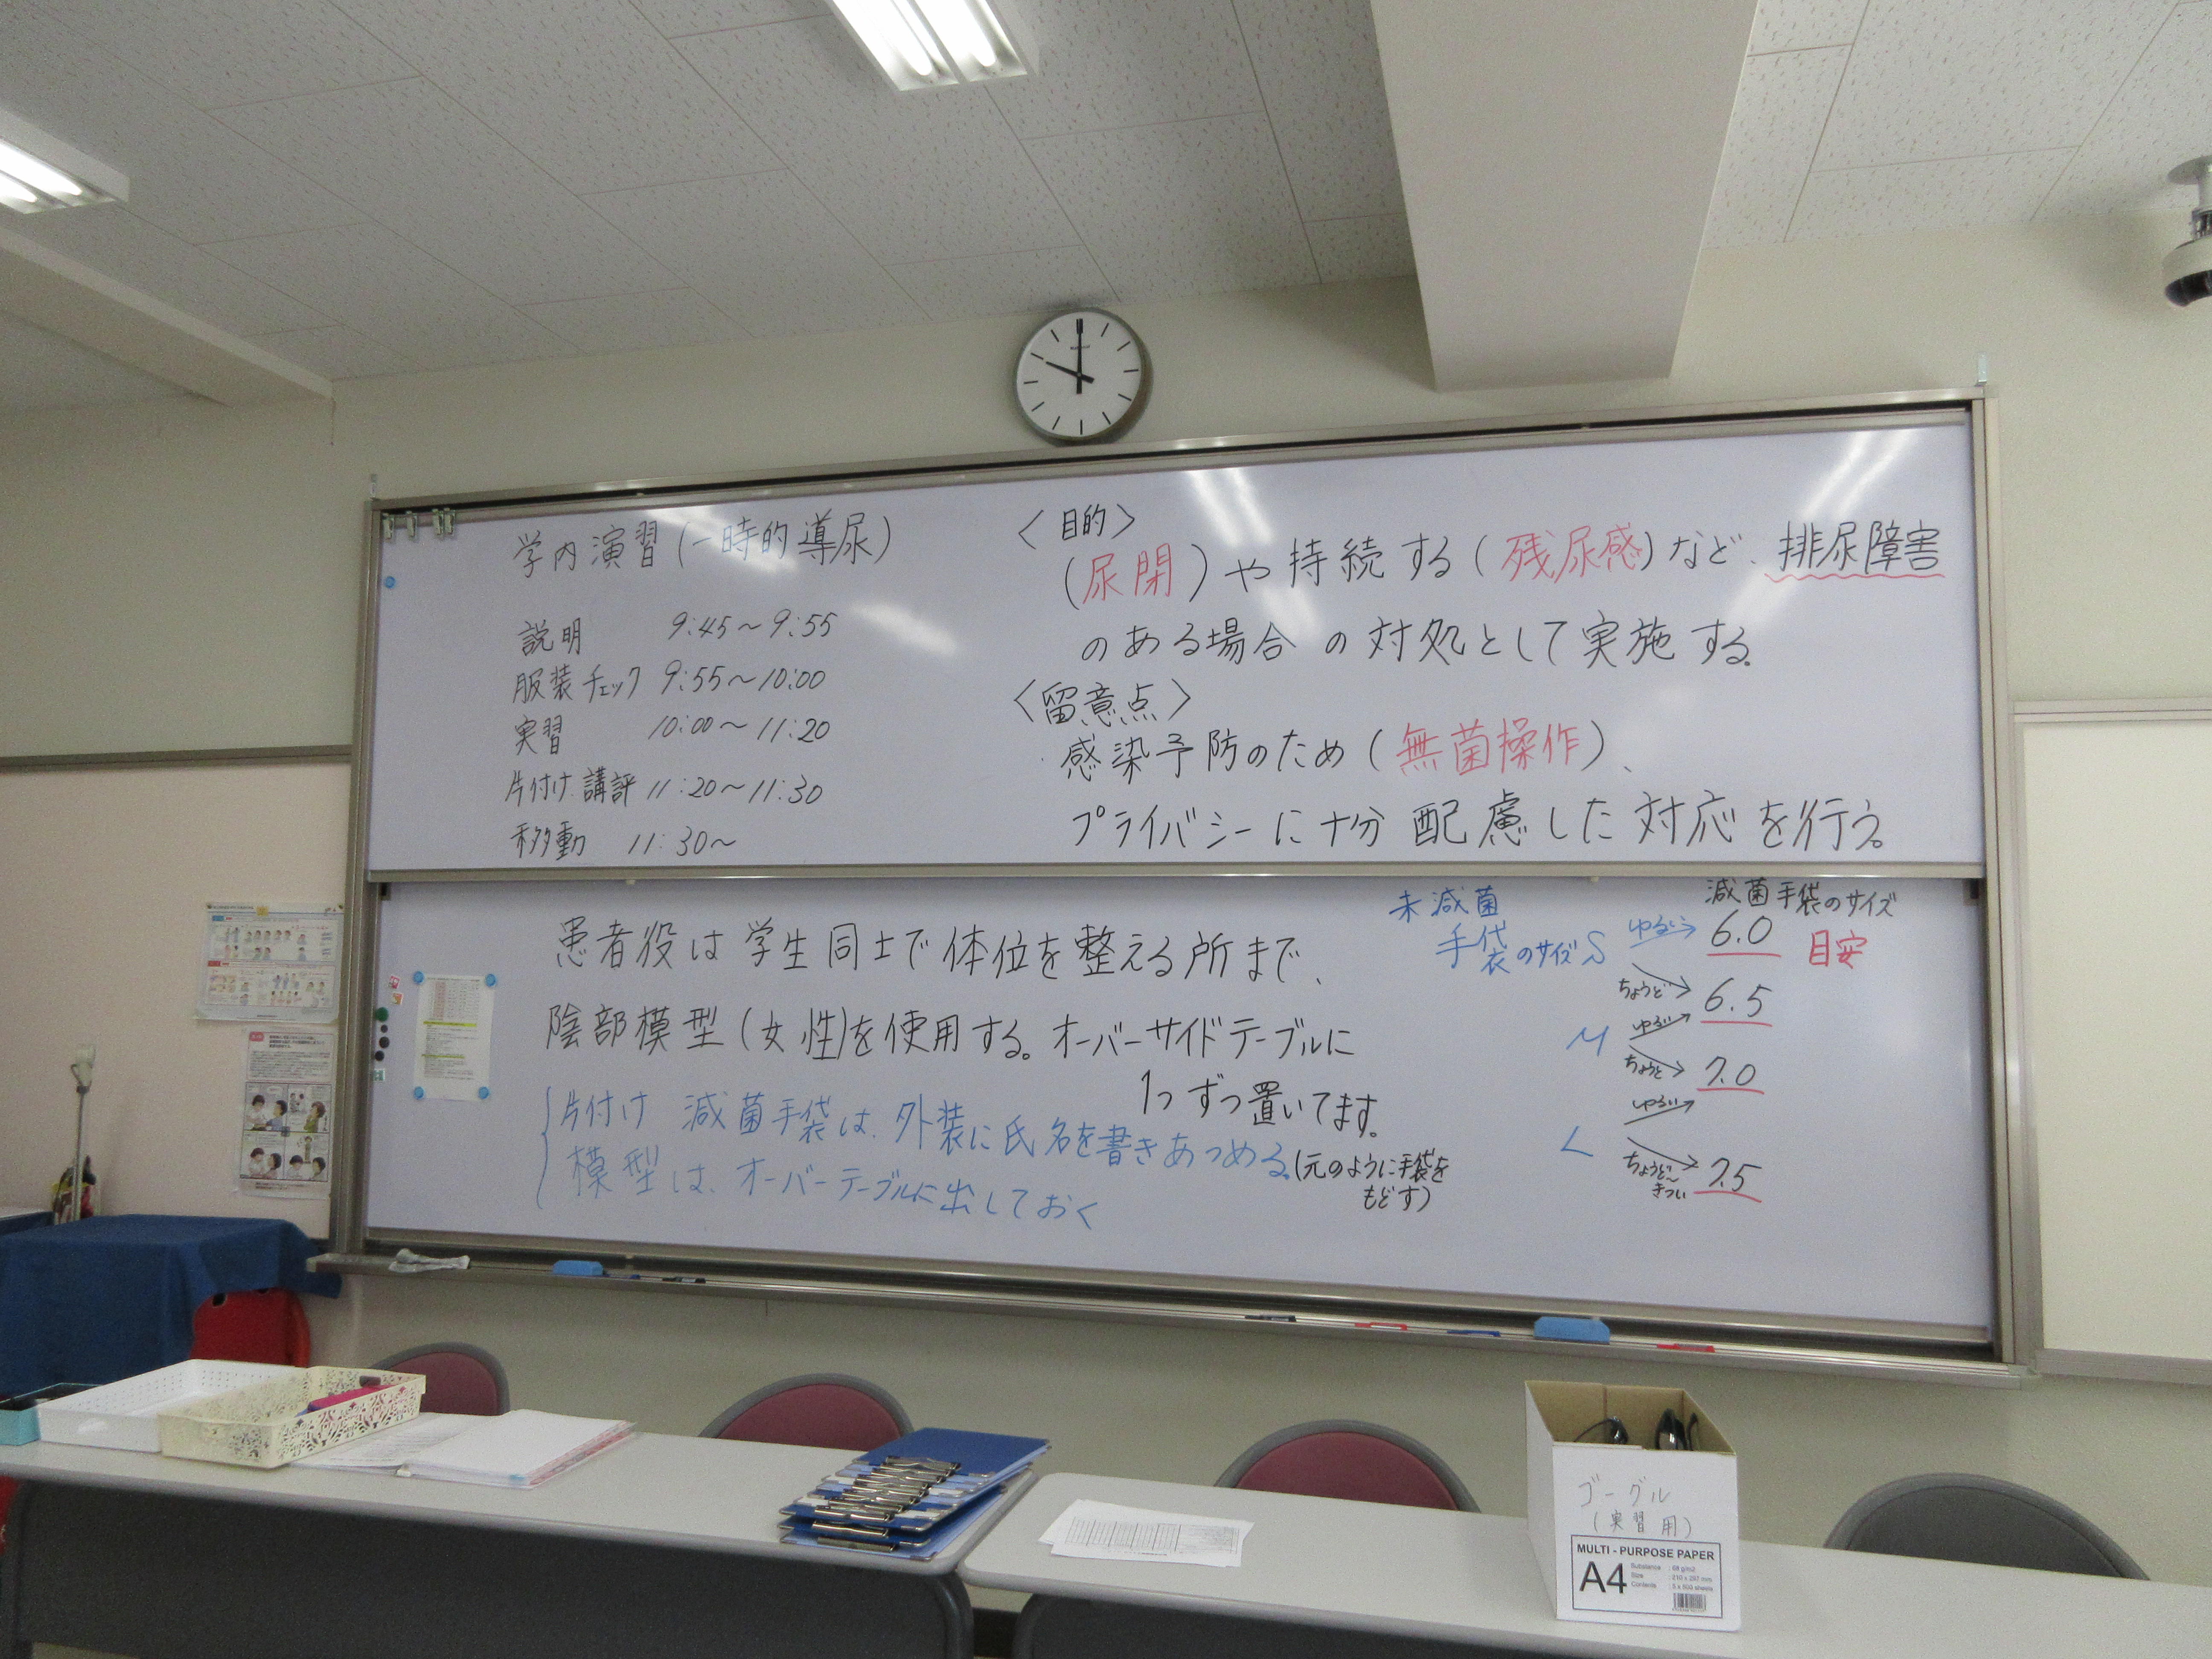 学内演習(一時的導尿)
説明 9:45～9:55
服装チェック 9:55～10:00
実習 10:00～11:20
片付け.講評 11:20～11:30
移動 11:30～
〈目的〉
(尿閉)や持続する(残尿感)など、排尿障害
のある場合の対処として実施する。
〈留意点〉
感染予防のため(無菌操作)、
プライバシーに十分配慮した対応を行う。
患者役は学生同士で体位を整える所まで、
陰部模型(女性)を使用する。オーバーサイドテーブルに
1つずつ置いてます。
片付け 滅菌手袋は、外装に氏名を書きあつめる。(元のように手袋を
もどす)
模型は、オーバーテーブルに出しておく
未滅菌
手袋のサイズ S
M
L
滅菌手袋のサイズ
ゆるい 6.0 目安
ちょうど 6.5
ゆるい
ちょうど 7.0
ゆるい
ちょうど～ 7.5
きつい
ゴーグル
(実習用)
MULTI - PURPOSE PAPER
A4
Substance : 68 g/m2
Size : 210 x 297 mm
Contents : 5 x 500 sheets